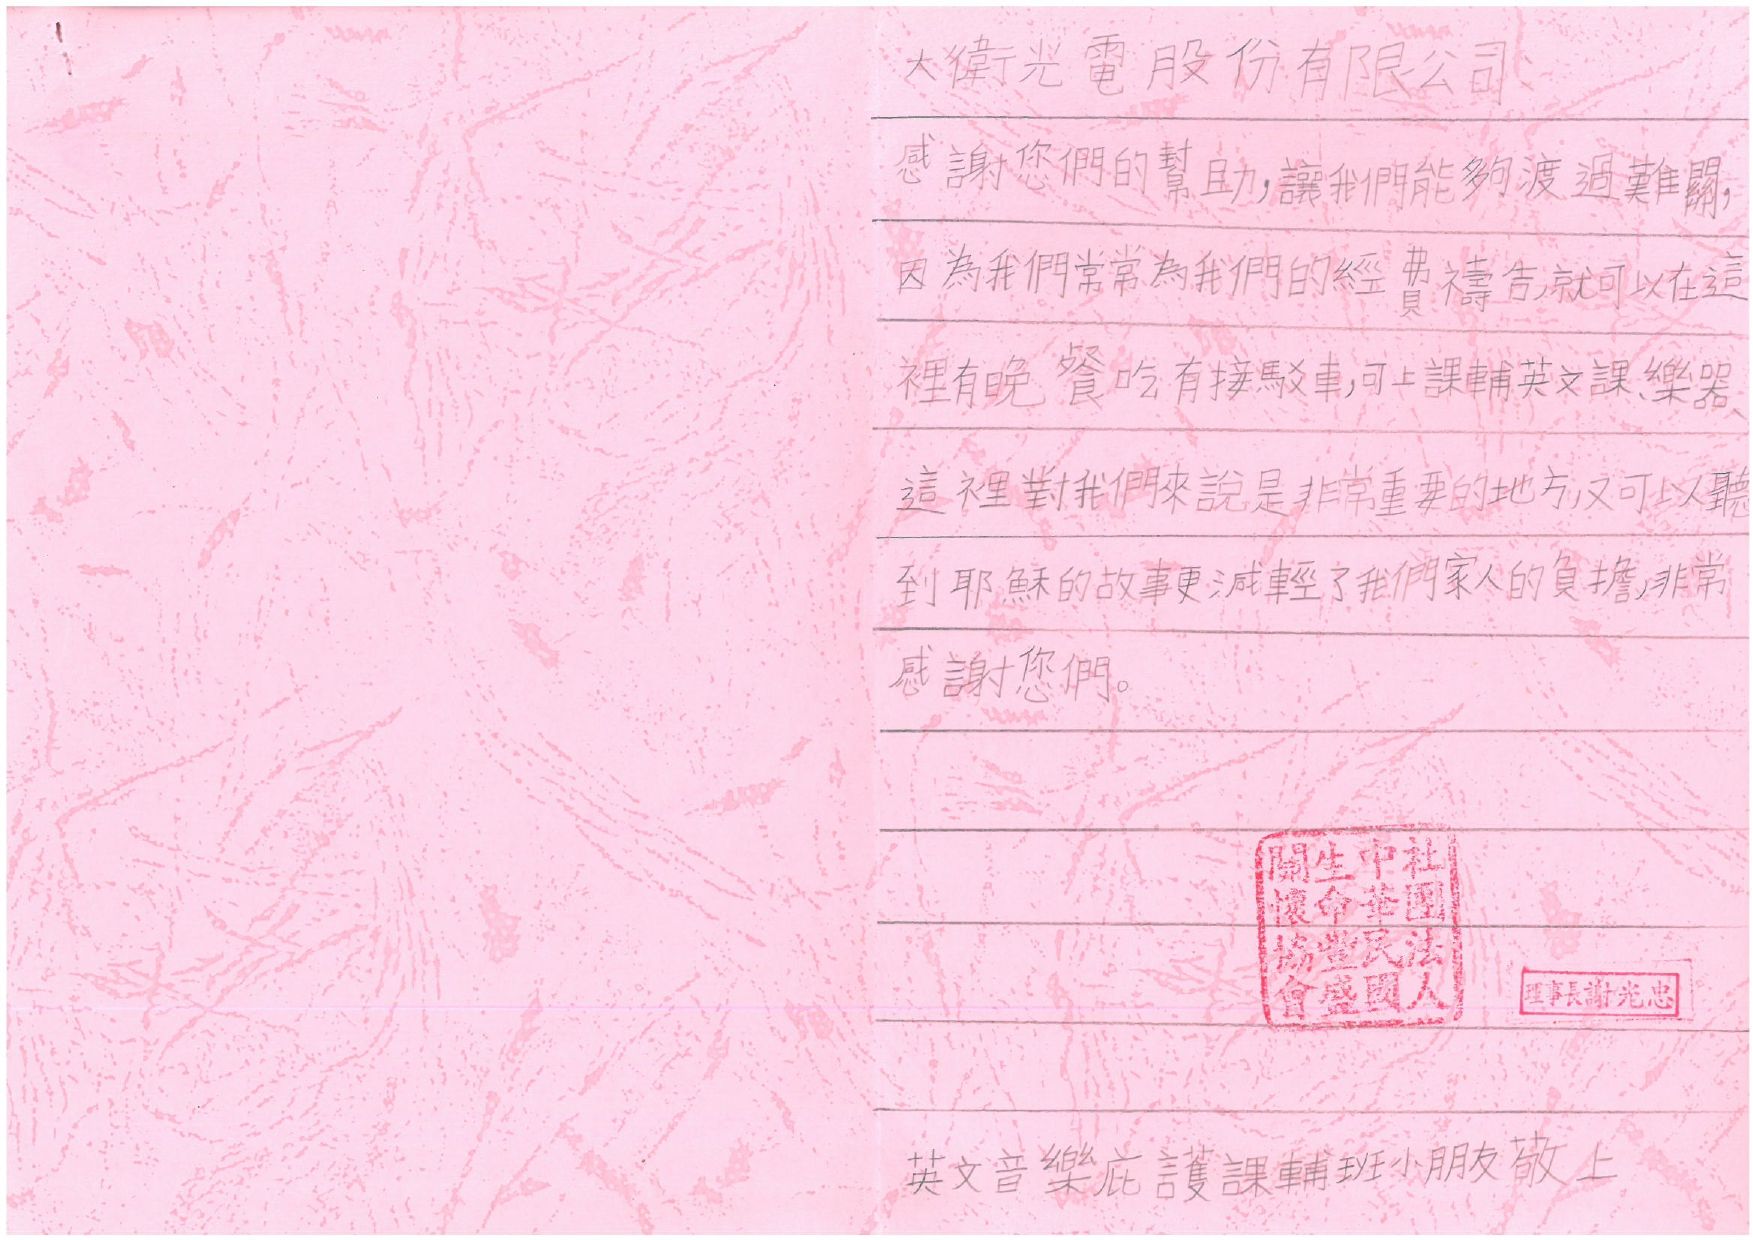 大衛光電股份有限公司
感謝您們的幫助,讓我們能夠渡過難關,
因為我們常常為我們的經費禱告,就可以在這
裡有晚餐吃有接駁車,可上課輔英文課、樂器、
這裡對我們來說是非常重要的地方,又可以聽
到耶穌的故事更減輕了我們家人的負擔,非常
感謝您們。
社團法人
中華民國
生命豐盛
關懷協會
理事長謝光忠
英文音樂庇護課輔班小朋友敬上